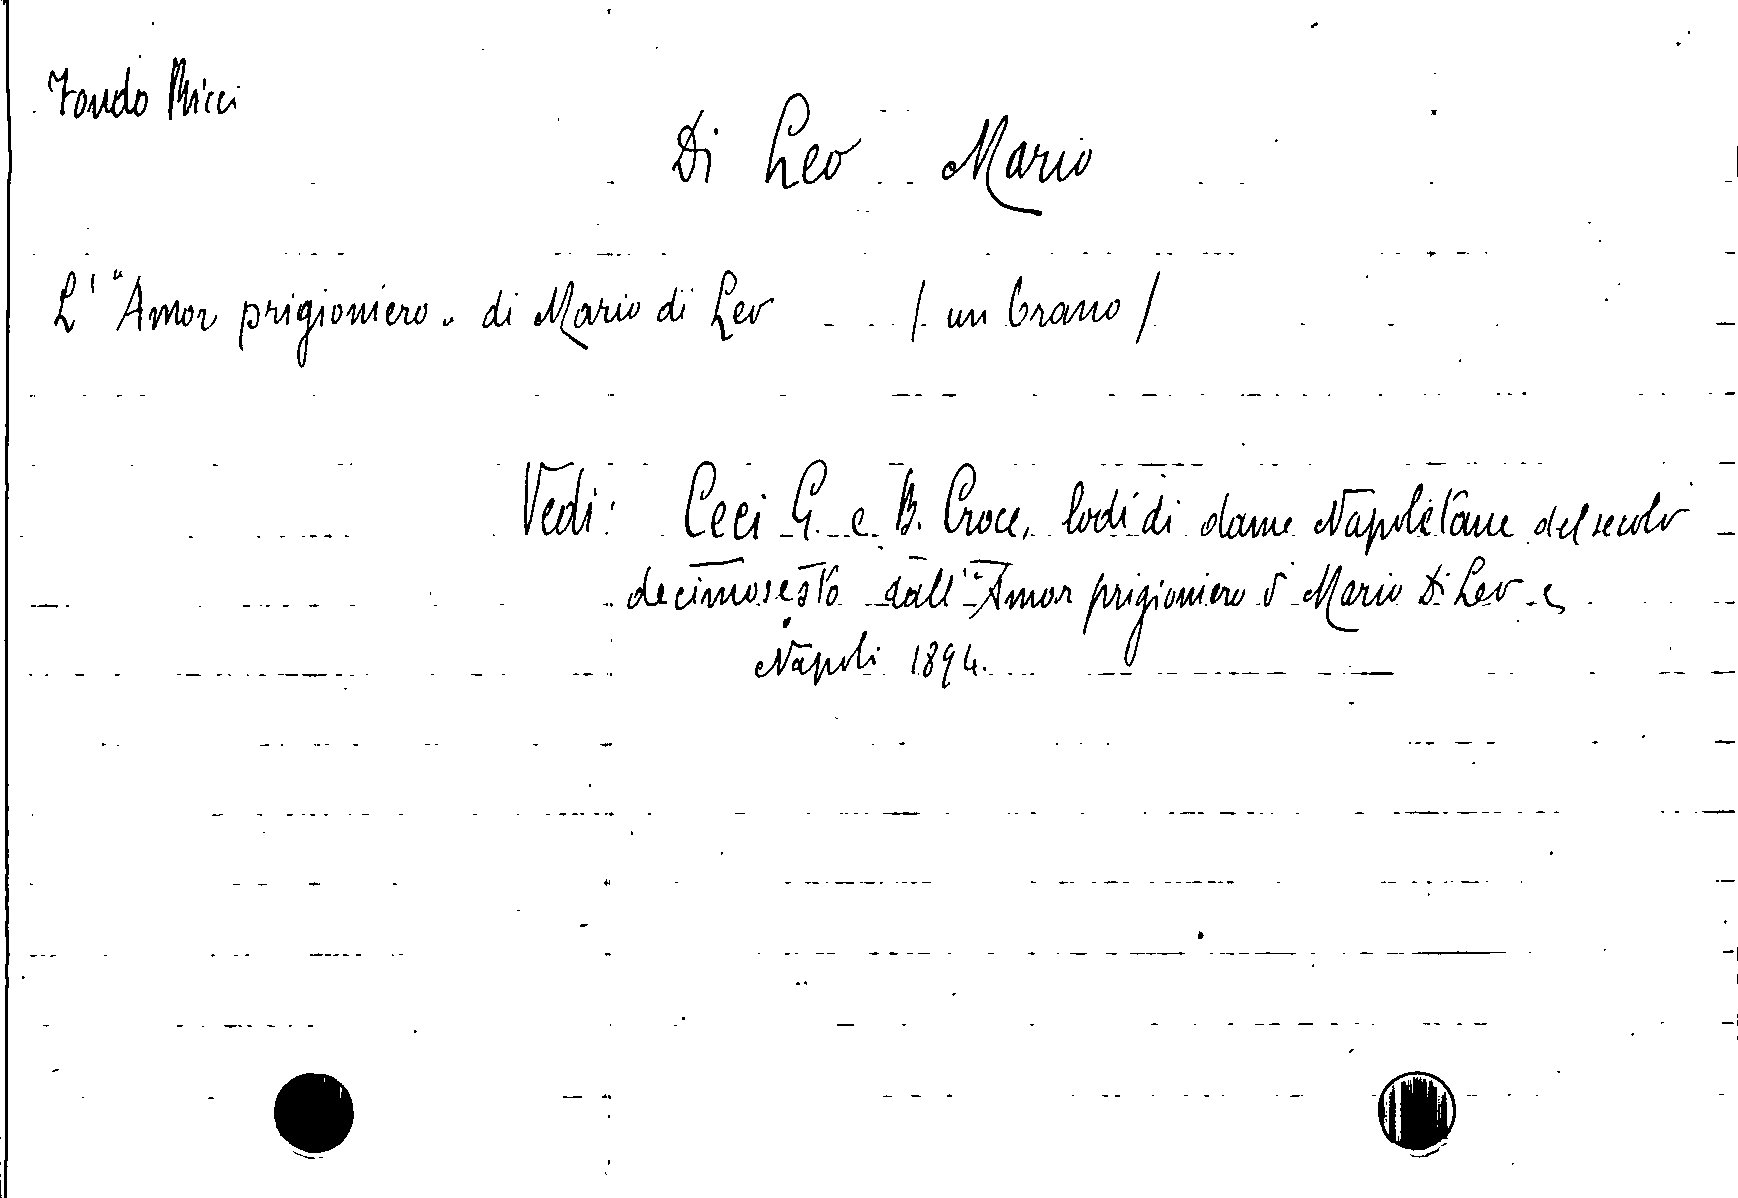 Fondo Ricci
Di Leo Mario
L' "Amor prigioniero" di Mario di Leo / un brano /
Vedi: Ceci G. e B. Croce, lodi di dame Napoletane del secolo
decimosesto dall' "Amor prigioniero" Mario Di Leo
Napoli 1894.